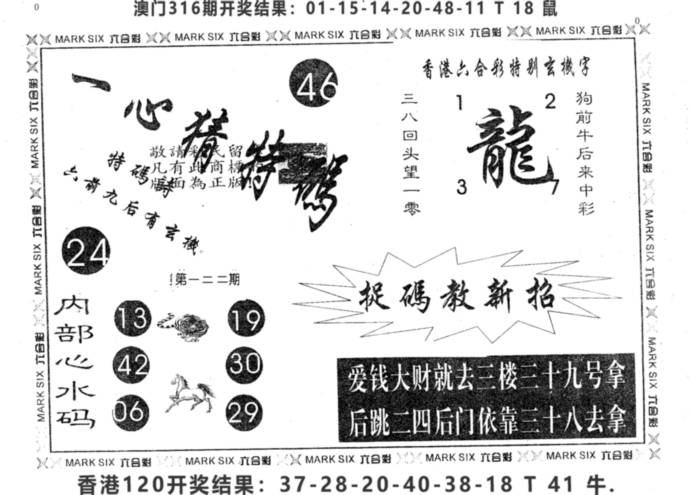 澳门316期开奖结果：01-15-14-20-48-11 T 18 鼠
0
0
MARK SIX 六合彩 MARK SIX 六合彩 MARK SIX 六合彩 MARK SIX 六合彩 MARK SIX 六合彩
一心猜特碼
46
敬請彩民留
凡有此商標
版面為正版!
特碼詩
六前九后有玄機
24
第一二二期
内部心水码
13
19
42
30
06
29
香港六合彩特别玄機字
三八回头望一零
1
2
龍
3
7
狗前牛后来中彩
捉碼教新招
爱钱大财就去三楼三十九号拿
后跳二四后门依靠三十八去拿
MARK SIX 六合彩
MARK SIX 六合彩
MARK SIX 六合彩
MARK SIX 六合彩
MARK SIX 六合彩
MARK SIX 六合彩
MARK SIX 六合彩 MARK SIX 六合彩 MARK SIX 六合彩 MARK SIX 六合彩 MARK SIX 六合彩
香港120开奖结果：37-28-20-40-38-18 T 41 牛.